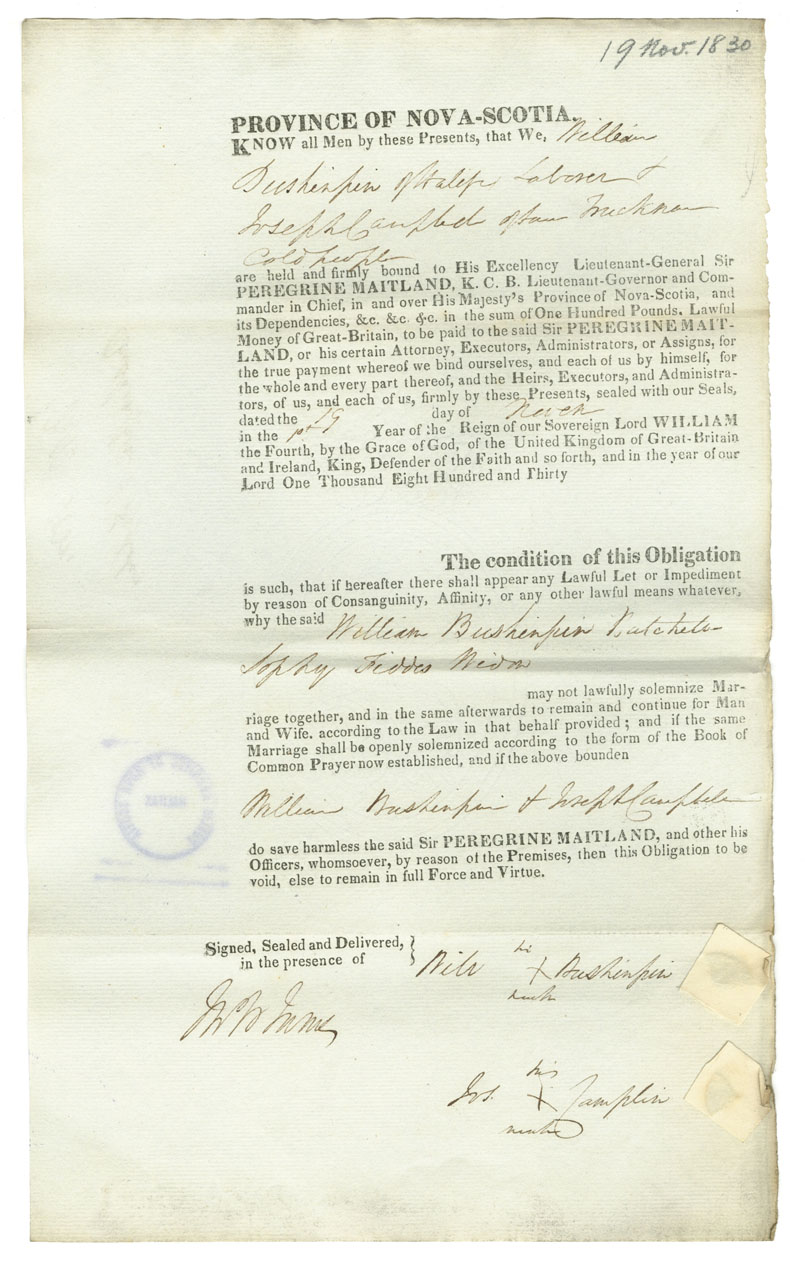 19 Nov. 1830
PROVINCE OF NOVA-SCOTIA.
KNOW all Men by these Presents, that We, William
Bushinpin of Halifx Laborer &
Joseph Campbel of Truckman
Cold people
are held and firmly bound to His Excellency Lieutenant-General Sir
PEREGRINE MAITLAND, K. C. B. Lieutenant-Governor and Com-
mander in Chief, in and over His Majesty's Province of Nova-Scotia, and
its Dependencies, &c. &c. &c. in the sum of One Hundred Pounds, Lawful
Money of Great-Britain, to be paid to the said Sir PEREGRINE MAIT-
LAND, or his certain Attorney, Executors, Administrators, or Assigns, for
the true payment whereof we bind ourselves, and each of us by himself, for
the whole and every part thereof, and the Heirs, Executors, and Administra-
tors, of us, and each of us, firmly by these Presents, sealed with our Seals,
dated the 19 day of
in the Year of the Reign of our Sovereign Lord WILLIAM
the Fourth, by the Grace of God, of the United Kingdom of Great-Britain
and Ireland, King, Defender of the Faith and so forth, and in the year of our
Lord One Thousand Eight Hundred and Thirty
The condition of this Obligation
is such, that if hereafter there shall appear any Lawful Let or Impediment
by reason of Consanguinity, Affinity, or any other lawful means whatever,
why the said William Bushinpin Batchelor
Sophy Fiddes Widow
may not lawfully solemnize Mar-
riage together, and in the same afterwards to remain and continue for Man
and Wife, according to the Law in that behalf provided; and if the same
Marriage shall be openly solemnized according to the form of the Book of
Common Prayer now established, and if the above bounden
William Bushinpin & Joseph Campbel
do save harmless the said Sir PEREGRINE MAITLAND, and other his
Officers, whomsoever, by reason of the Premises, then this Obligation to be
void, else to remain in full Force and Virtue.
Signed, Sealed and Delivered,
in the presence of
his
Will X Bushinpin
mark
his
Jos. X Camplin
mark